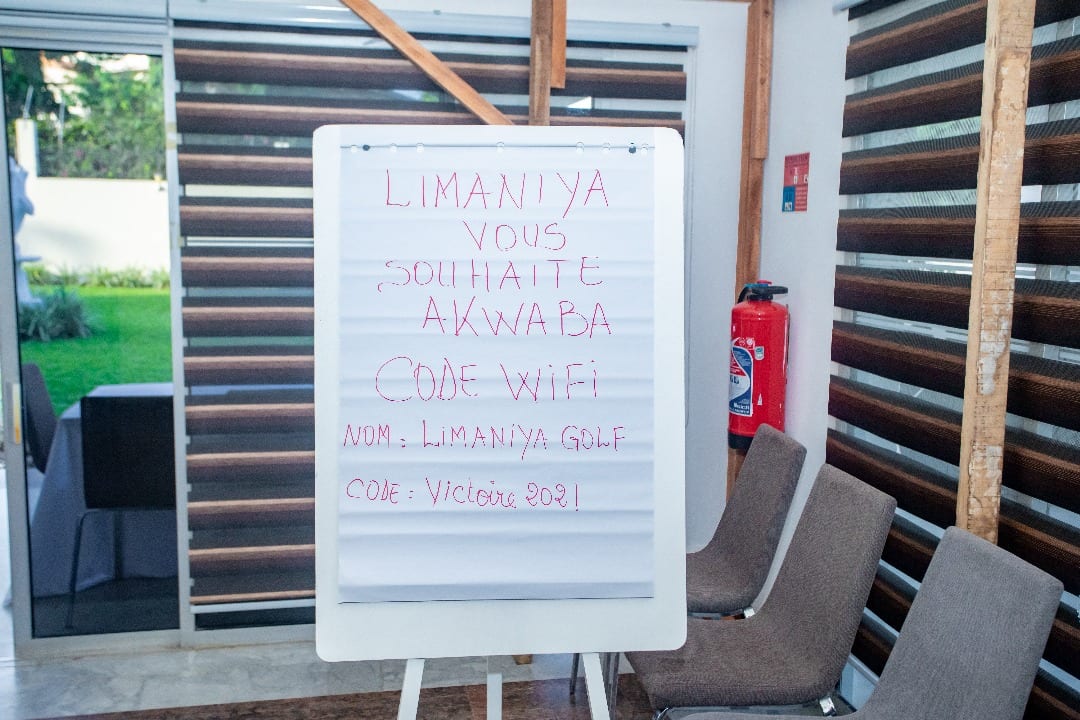 LIMANIYA
VOUS
SOUHAITE
AKWABA
CODE WiFi
NOM : LiMANiYA GOLF
CODE : Victoire 2021